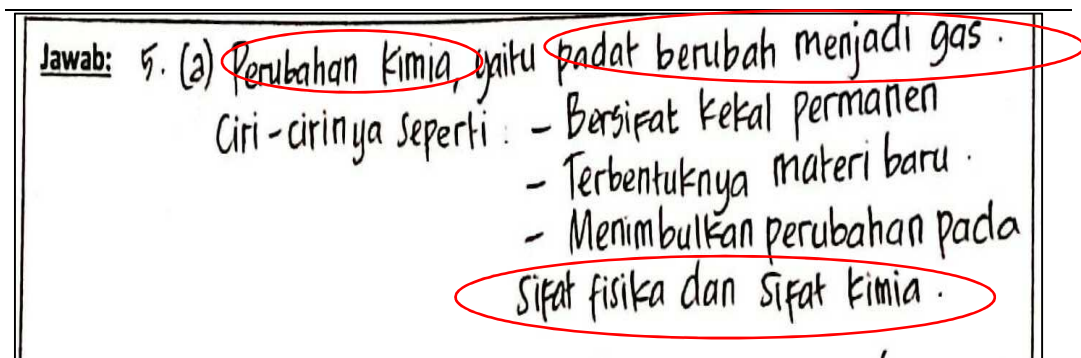 Jawab: 5. (a) Perubahan kimia, yaitu padat berubah menjadi gas.
Ciri-cirinya seperti: - Bersifat kekal permanen
- Terbentuknya materi baru.
- Menimbulkan perubahan pada
sifat fisika dan sifat kimia.